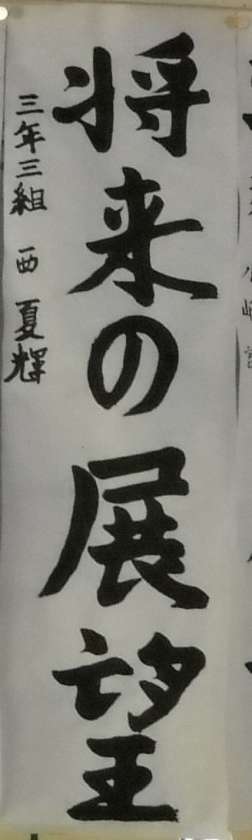 将来の展望
三年三組 西 夏輝